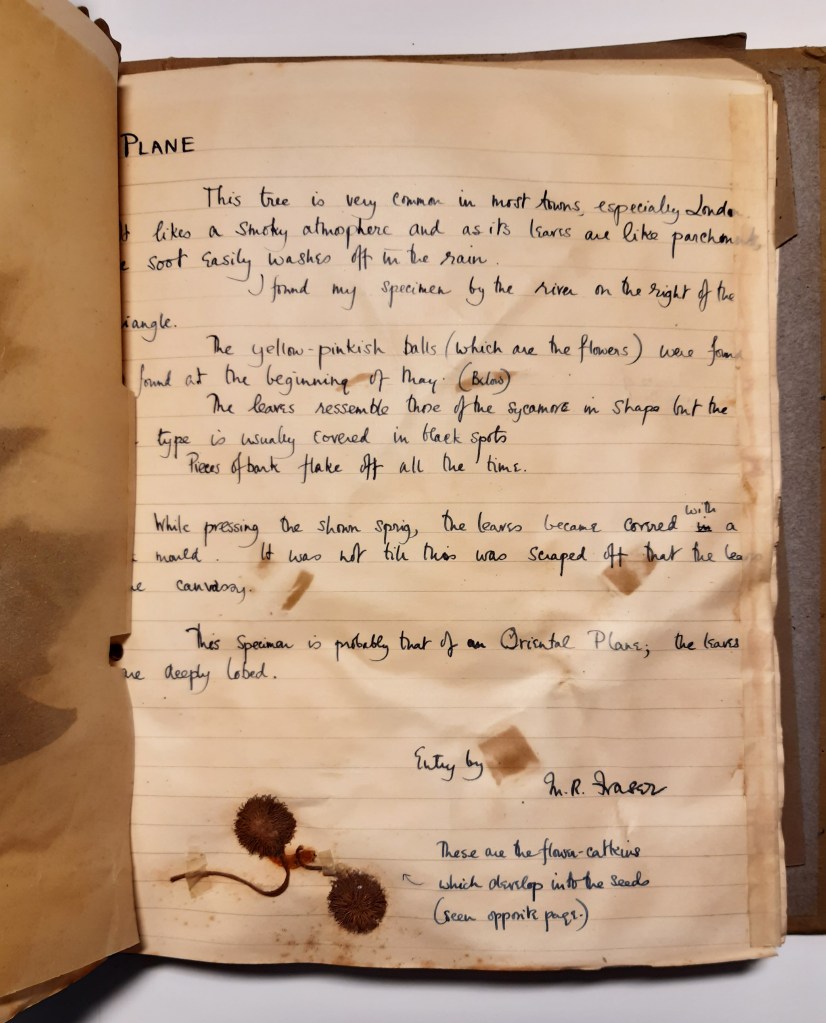 PLANE
This tree is very common in most towns, especially Londo
t likes a smoky atmosphere and as its leaves are like parchment,
e soot easily washes off in the rain.
I found my specimen by the river on the right of the
iangle.
The yellow-pinkish balls (which are the flowers) were foun
found at the beginning of May. (Below)
The leaves ressemble those of the sycamore in shape but the
type is usually covered in black spots
Pieces of bark flake off all the time.
with
While pressing the shown sprig, the leaves became covered in a
mould. It was not till this was scraped off that the leav
e
This specimen is probably that of an Oriental Plane; the leaves
re deeply lobed.
Entry by
M. R. Fraser
These are the flower-catkins
which develop into the seeds
(seen opposite page.)